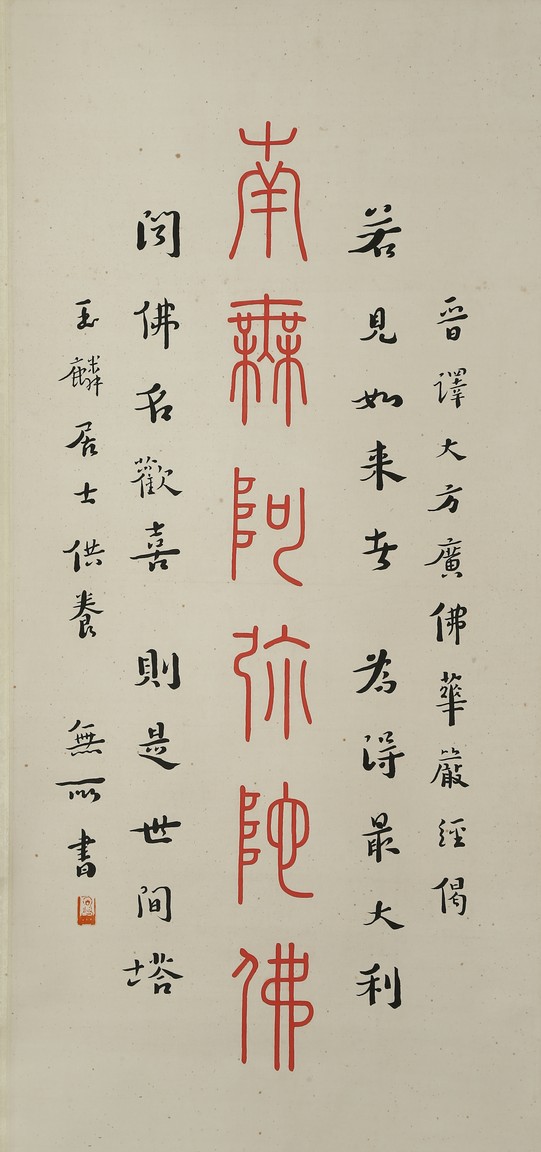 晉譯大方廣佛華嚴經偈
若見如来者 為得最大利
南無阿弥陀佛
聞佛名歡喜 則是世間塔
玉麟居士供養 無所書